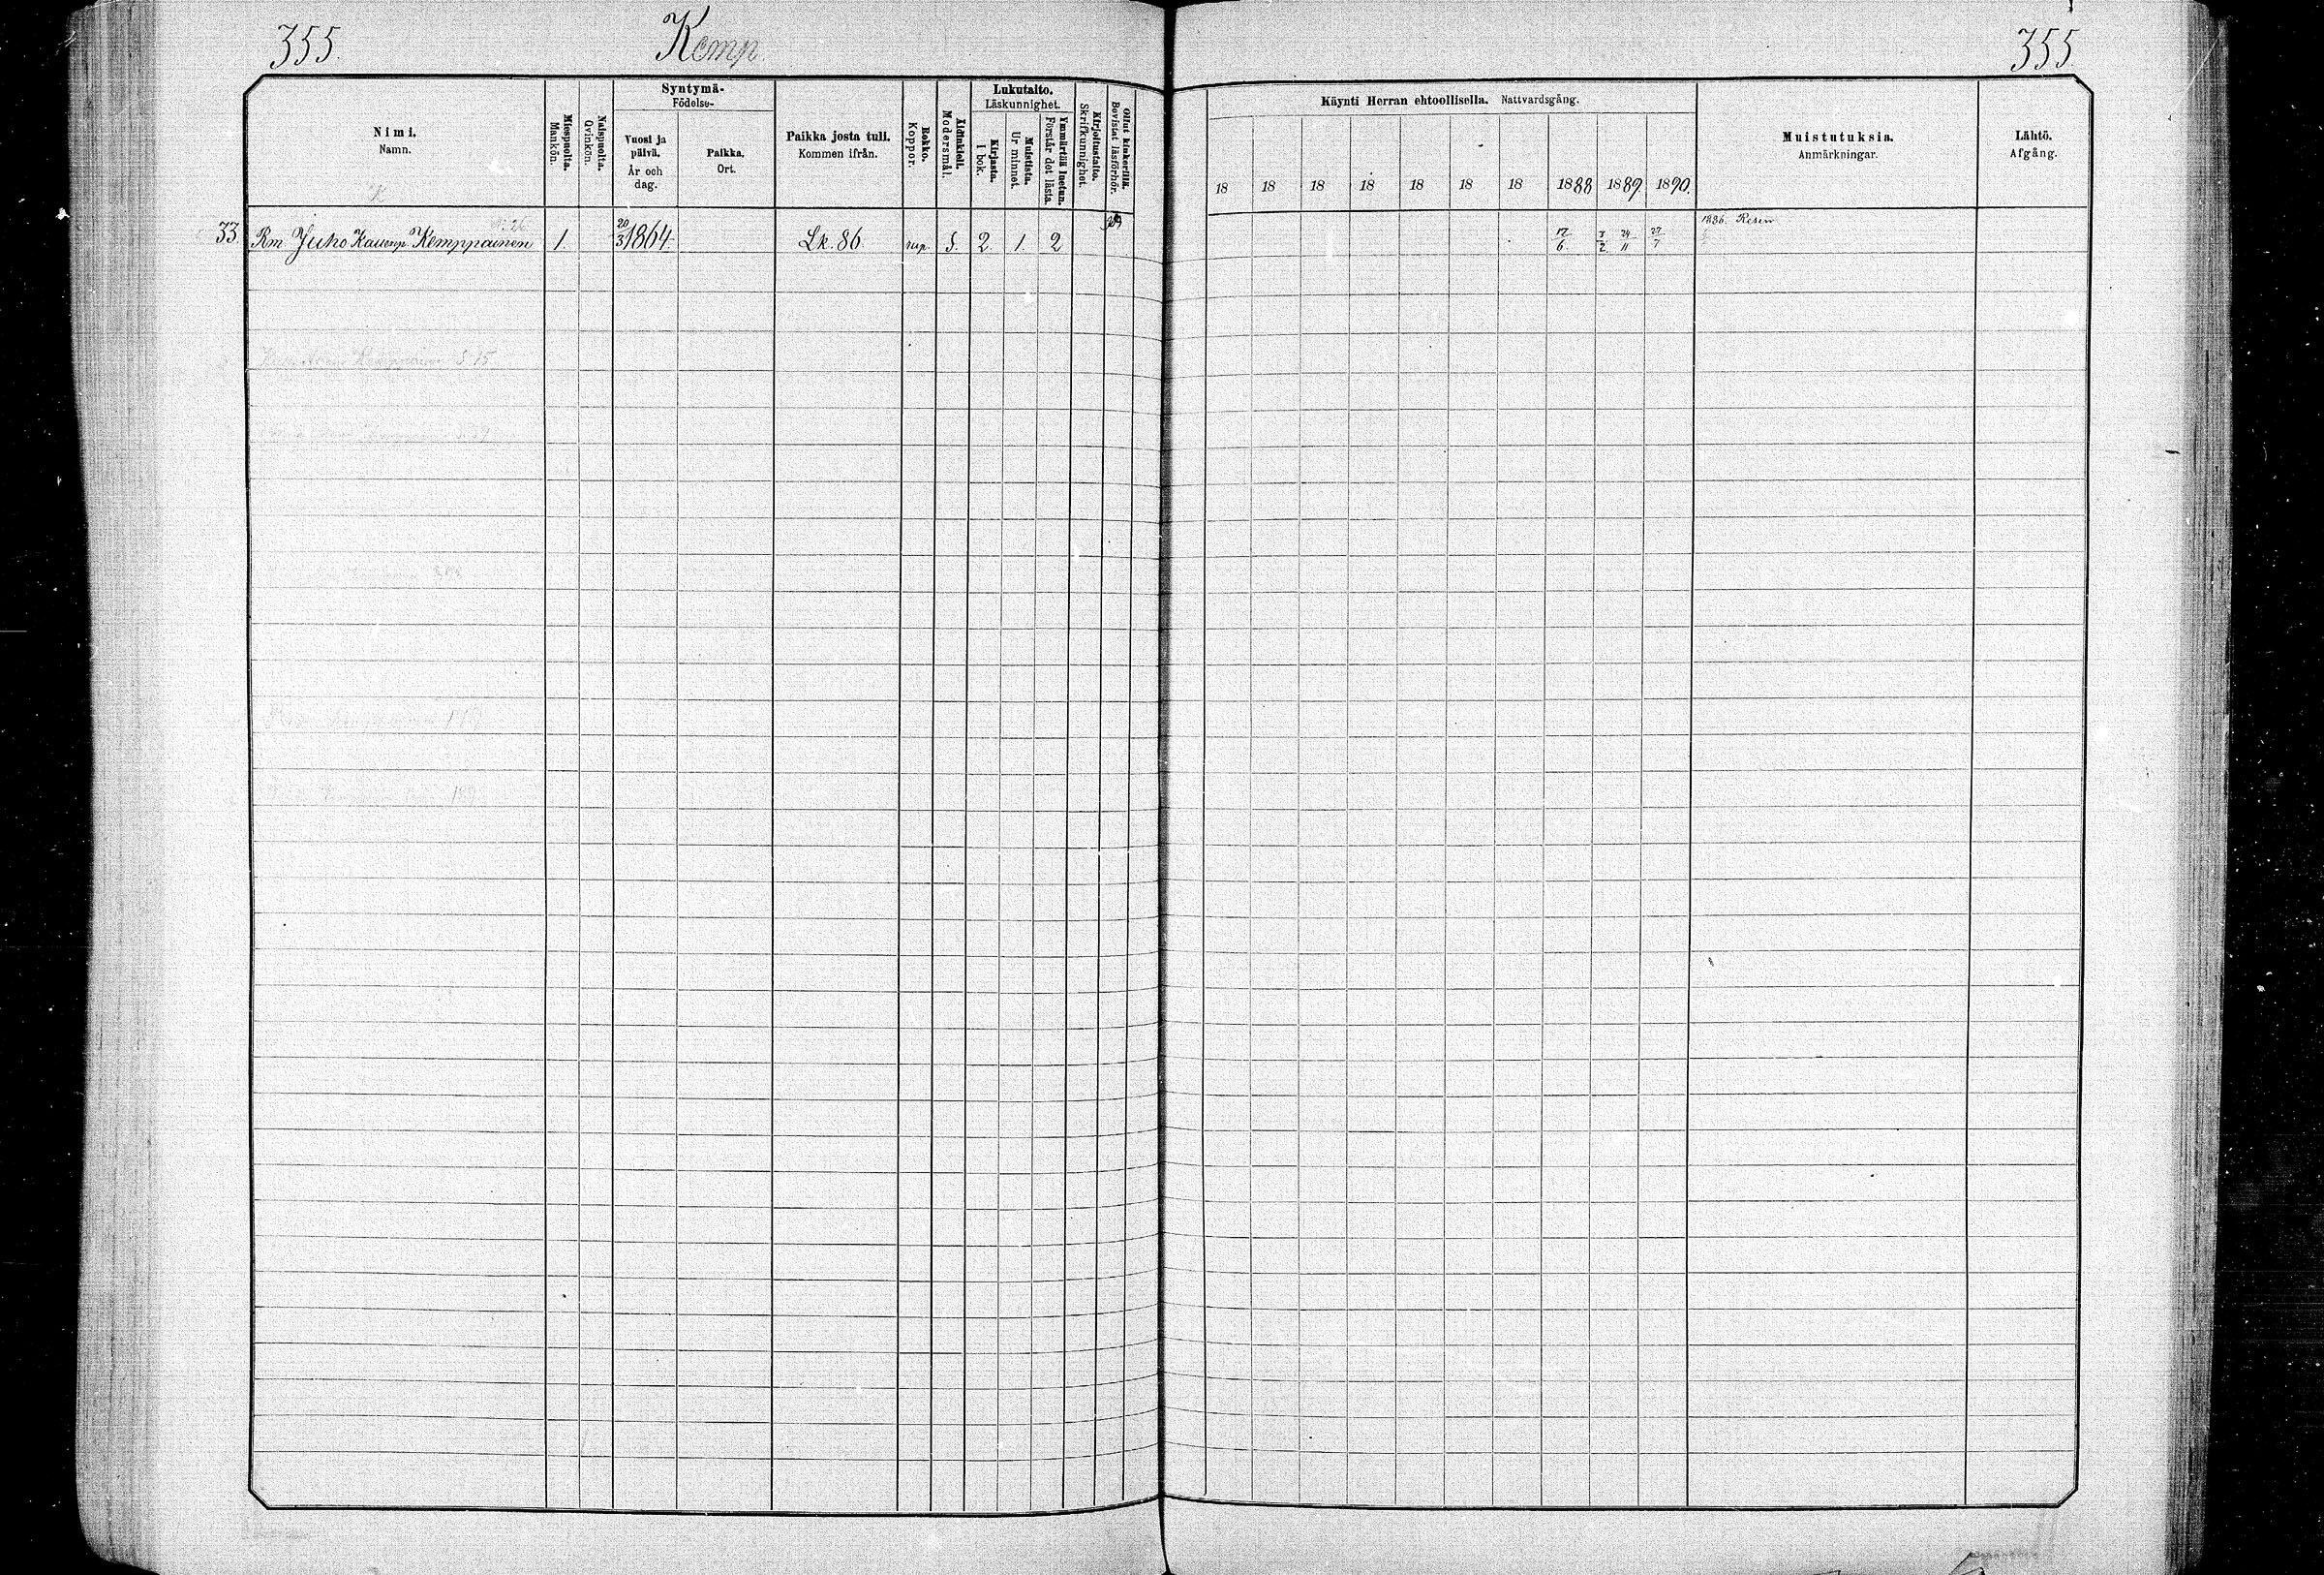 355. Kemp. 355.
Nimi. Namn.
Miespuolta. Mankön.
Naispuolta. Qvinkön.
Syntymä- Födelse-
Vuosi ja päivä. År och dag.
Paikka. Ort.
Paikka josta tuli. Kommen ifrån.
Rokko. Koppor.
Äidinkieli. Modersmål.
Lukutaito. Läskunnighet.
Kirjasta. I bok.
Muistista. Ur minnet.
Ymmärtää luetun. Förstår det lästa.
Kirjoitustaito. Skrifkunnighet.
Ollut kinkerillä. Bevistat läsförhör.
Käynti Herran ehtoollisella. Nattvardsgång.
18 18 18 18 18 18 18 1888 1889. 1890.
Muistutuksia. Anmärkningar.
Lähtö. Afgång.
33. Rm Juho Kemppainen 1. 20/3 1864. Lk. 86 rup. S. 2. 1. 2 12/6. 24/11 27/7 1886.